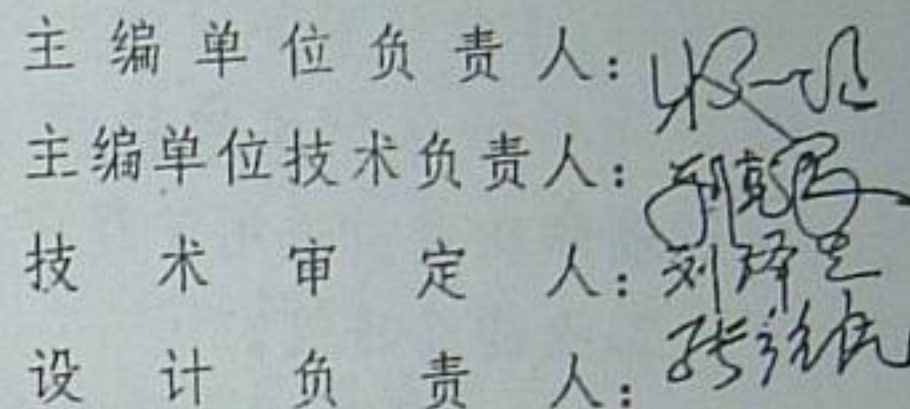 主编单位负责人:
主编单位技术负责人:
技术审定人:刘
设计负责人:张